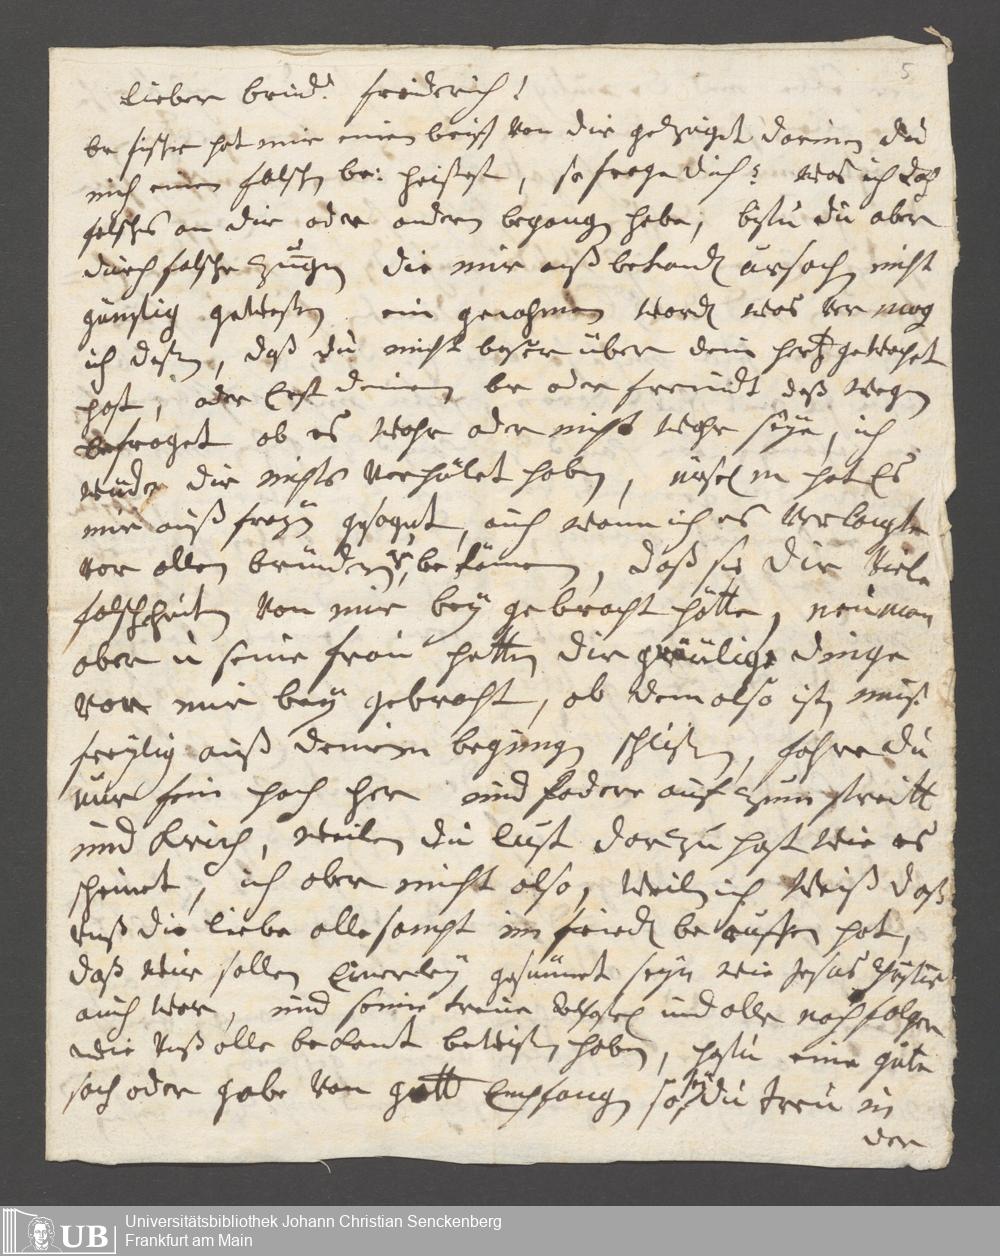 5
Lieber brud. friderich!
br fischer hat mir einen brieff von dir gezeiget darinen du
mich einen falschen br: heissest, so frage dich? was ich doch
falsches an dir oder andern begangen habe, bistu du aber
durch falsche zungen die mir auß bekand ursachen nicht
günstig gewessen ein genohmen word was ver mag
ich dafür, daß du nicht besser über dein hertz gewachet
hast, oder Erst deinen br oder freundt deß wegen
befraget ob es wahr oder nicht wahr seye, ich
würde dir nichts verhälet haben, hat Es
mir auß gesaget, auch wann ich es verlangte
vor allen brüdern be kännen, daß sie dir viele
falschheiten von mir bey gebracht hätte, neuman
aber u seine frau hetten dir gräulige dinge
von mir bey gebracht, ob dem also ist, muß
freylig auß deinem begungen schlissen, fahre du
nur fein hoch her und fodere auf zum streitt
und krich, weilen du lust darzu hast wie es
scheinet, ich aber nicht also, weil ich weiß daß
unß die liebe alle sampt im fried beruffen hat,
daß wir sollen Einerley gesinnet seyn wie Jesus Christus
auch war, und seine treue und alle nachfolger
wie unß alle bekant bewissen haben, hastu eine gute
sach oder gabe von gott Empfangen so sey du treu in
der
UB
Universitätsbibliothek Johann Christian Senckenberg
Frankfurt am Main